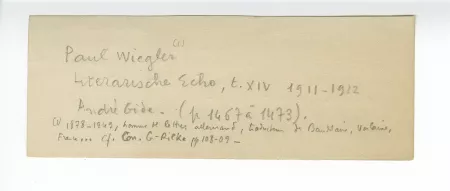 Paul Wiegler (1)
Literarische Echo, t. XIV 1911-1912
André Gide. (p 1467 à 1473).
(1) 1878-1949, homme de lettres allemand, traducteur de Baudelaire, Verlaine,
cf. Corr. G-Rilke pg 108-09-